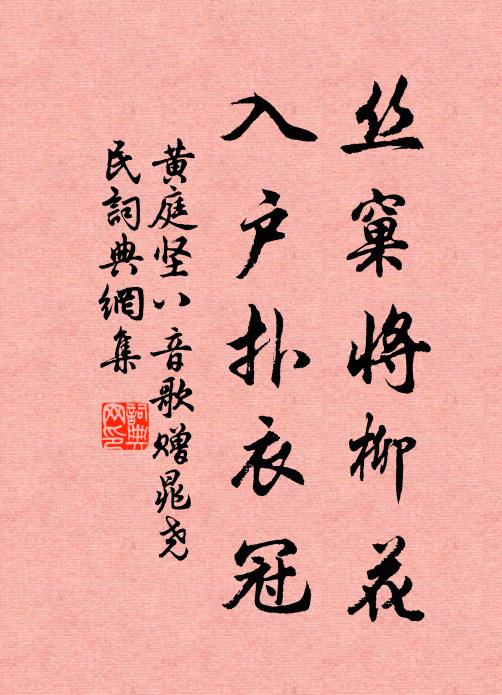 丝窠将柳花
入户扑衣冠
黄庭坚八音歌赠晁尧
民词典网集
词典网印